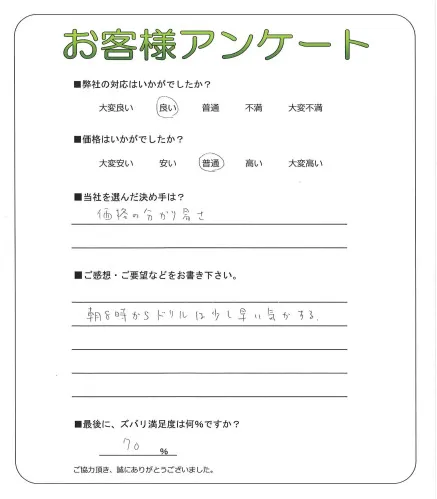 お客様アンケート
■弊社の対応はいかがでしたか？
大変良い 良い 普通 不満 大変不満
■価格はいかがでしたか？
大変安い 安い 普通 高い 大変高い
■当社を選んだ決め手は？
価格の分かり易さ
■ご感想・ご要望などをお書き下さい。
朝8時からドリルは少し早い気がする.
■最後に、ズバリ満足度は何%ですか？
70 %
ご協力頂き、誠にありがとうございました。